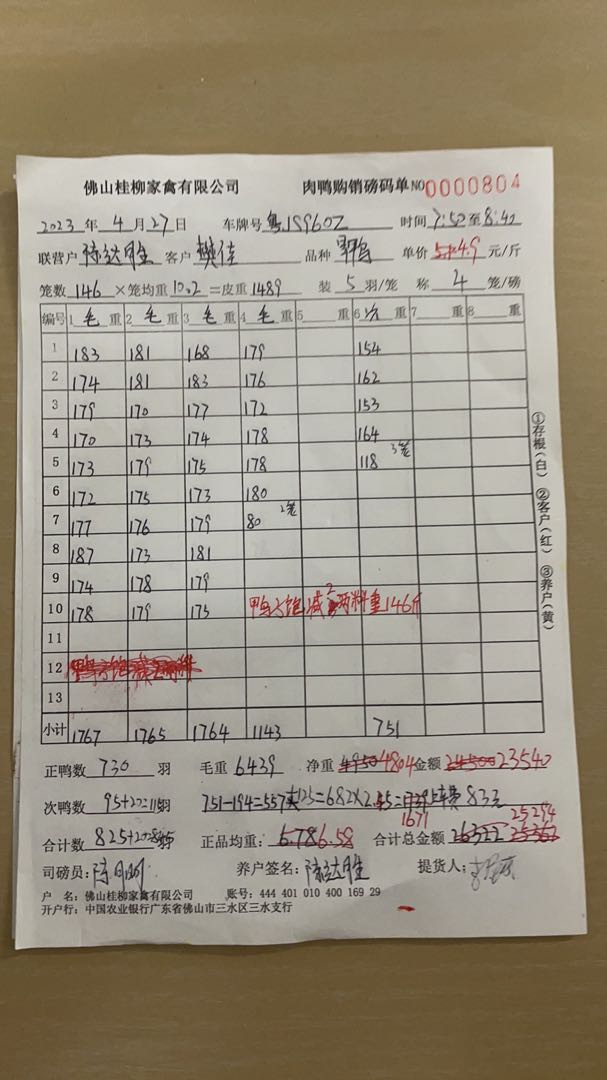 佛山桂柳家禽有限公司 肉鸭购销磅码单 NO 0000804
2023 年 4 月 27 日 车牌号 时间 7:52 至 8:42
联营户 陈达胜 客户 樊佳 品种 单价 4.9 元/斤
笼数 146 ×笼均重 10.2 =皮重 1489 装 5 羽/笼 称 4 笼/磅
编号 1 毛 重 2 毛 重 3 毛 重 4 毛 重 5 重 6 次 重 7 重 8 重
1 183 181 168 179 154
2 174 181 183 176 162
3 179 170 177 172 153
4 170 173 174 178 164
5 173 179 175 178 118 3笼
6 172 175 173 180
7 177 176 179 80 2笼
8 187 173 181
9 174 178 179
10 178 179 175 鸭太饱减2两料重146斤
11
12
13
小计 1767 1765 1764 1143 751
正鸭数 730 羽 毛重 6439 净重 4950 4804 金额 24500 23540
次鸭数 95+20=115 羽 751-194=557 +125=682×2.45= 1671 上车费 83元
合计数 825+20=845 羽 正品均重： 6.78 6.58 合计总金额 26322 25362 25294
司磅员： 养户签名：陈达胜 提货人：
户 名：佛山桂柳家禽有限公司 账号：444 401 010 400 169 29
开户行：中国农业银行广东省佛山市三水区三水支行
①存根（白） ②客户（红） ③养户（黄）